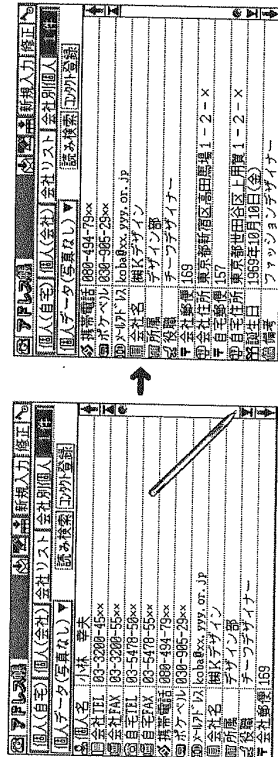 アドレス帳 新規入力 修正
個人(自宅) 個人(会社) 会社リスト 会社別個人
個人データ(写真なし)▼ 読み検索 コンタクト登録
個人名 小林 幸夫
会社TEL 03-3200-45××
会社FAX 03-3200-55××
自宅TEL 03-5478-50××
自宅FAX 03-5478-55××
携帯電話 080-494-79××
ポケベル 030-905-29××
メールアドレス koba@xx.yyy.or.jp
会社名 ㈱Kデザイン
所属 デザイン部
役職 チーフデザイナー
〒会社郵便 169
アドレス帳 新規入力 修正
個人(自宅) 個人(会社) 会社リスト 会社別個人
個人データ(写真なし)▼ 読み検索 コンタクト登録
携帯電話 080-494-79××
ポケベル 030-905-29××
メールアドレス koba@xx.yyy.or.jp
会社名 ㈱Kデザイン
所属 デザイン部
役職 チーフデザイナー
〒会社郵便 169
会社住所 東京都新宿区高田馬場1-2-×
〒自宅郵便 157
自宅住所 東京都世田谷区上用賀1-2-×
誕生日 1969年10月10日(金)
備考 ファッションデザイナー